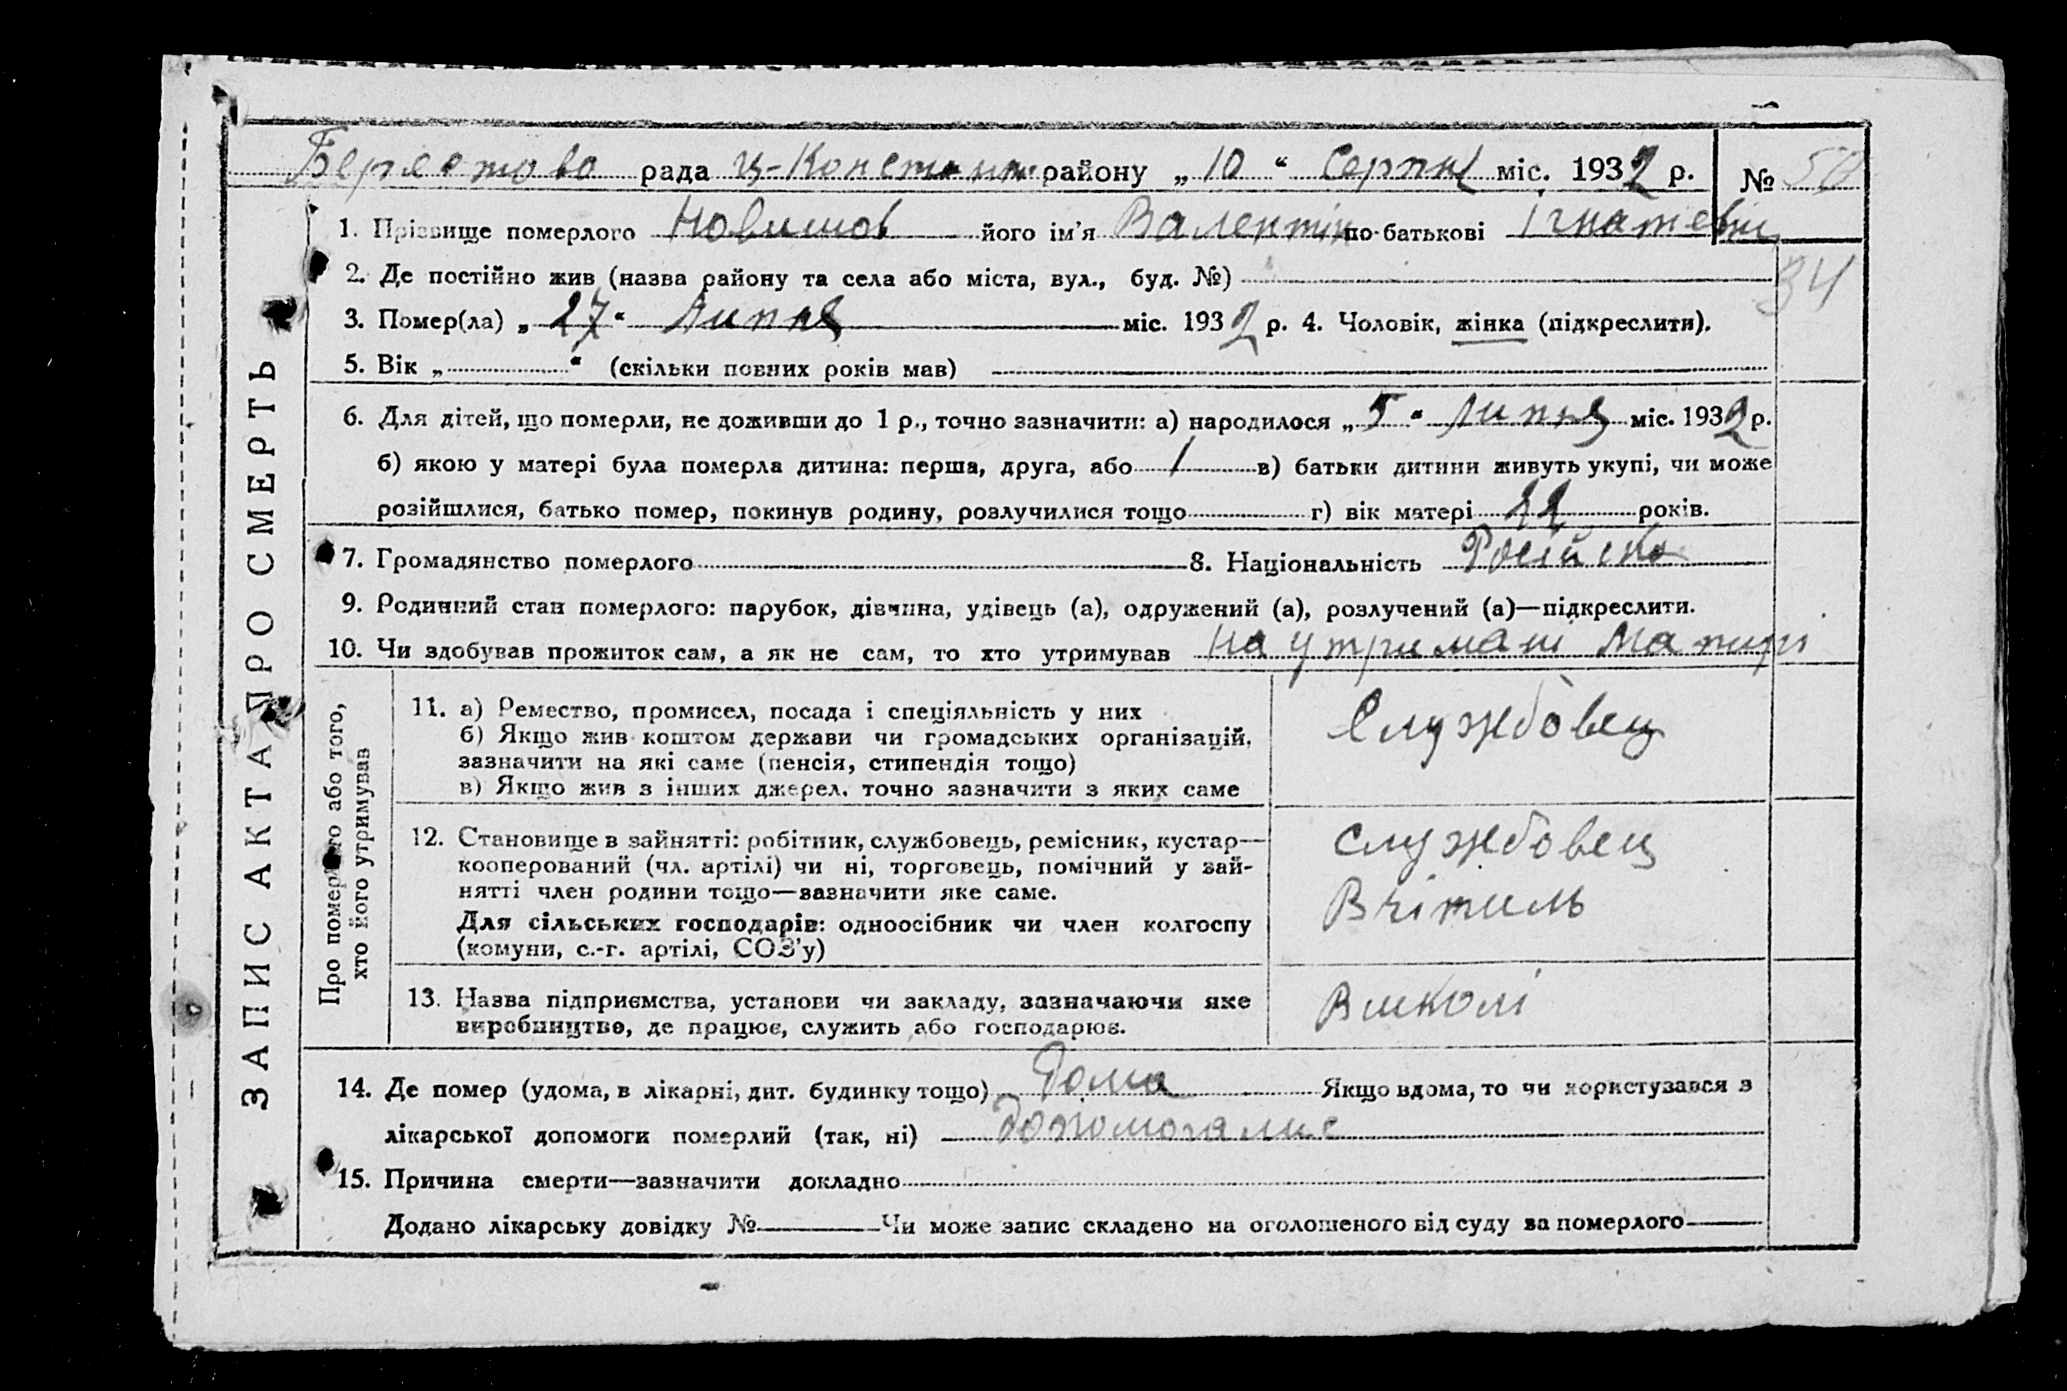 Берестово рада Ц-Констант району „ 10 “ Серпня міс. 1932 р. № 50
1. Прізвище померлого Новишов його ім'я Валентін по-батькові Ігнатевіч
2. Де постійно жив (назва району та села або міста, вул., буд. №)
34
3. Помер(ла) „ 27 “ Липня міс. 1932 р. 4. Чоловік, жінка (підкреслити).
5. Вік „ “ (скільки повних років мав)
6. Для дітей, що померли, не доживши до 1 р., точно зазначити: а) народилося „ 5 “ Липня міс. 1932 р.
б) якою у матері була померла дитина: перша, друга, або 1 в) батьки дитини живуть укупі, чи може
розійшлися, батько помер, покинув родину, розлучилися тощо г) вік матері 22 років.
7. Громадянство померлого 8. Національність Російско
9. Родинний стан померлого: парубок, дівчина, удівець (а), одружений (а), розлучений (а)—підкреслити.
10. Чи здобував прожиток сам, а як не сам, то хто утримував на утримані Матирі
ЗАПИС АКТА ПРО СМЕРТЬ
Про померлого або того,
хто його утримував
11. а) Ремество, промисел, посада і спеціяльність у них
б) Якщо жив коштом держави чи громадських організацій,
зазначити на які саме (пенсія, стипендія тощо)
в) Якщо жив з інших джерел, точно зазначити з яких саме
Службовец
12. Становище в зайнятті: робітник, службовець, ремісник, кустар—
кооперований (чл. артілі) чи ні, торговець, помічний у зай-
нятті член родини тощо—зазначити яке саме.
Для сільських господарів: одноосібник чи член колгоспу
(комуни, с.-г. артілі, СОЗ'у)
службовец
Вчітиль
13. Назва підприємства, установи чи закладу, зазначаючи яке
виробництво, де працює, служить або господарює.
В школі
14. Де помер (удома, в лікарні, дит. будинку тощо) Дома Якщо вдома, то чи користувався з
лікарської допомоги померлий (так, ні)
15. Причина смерти—зазначити докладно
Додано лікарську довідку № Чи може запис складено на оголошеного від суду за померлого